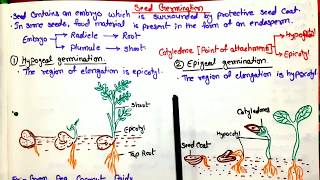 Seed Germination
• Seed contains an embryo which is surrounded by protective seed coat.
• In some seeds, food material is present in the form of an endosperm.
Embryo → Radicle → Root
→ Plumule → shoot
Cotyledons [Point of attachment]
→ Hypocotyl
→ Epicotyl
① Hypogeal germination.
• The region of elongation is epicotyl.
② Epigeal germination.
• The region of elongation is hypocotyl.
Shoot
Epicotyl
Tap Root
Cotyledons
Hypocotyl
Seed Coat
Gram Pea Coconut